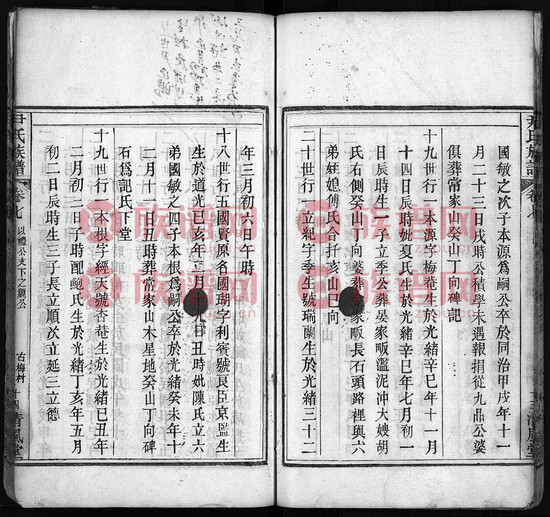 國敏之次子本源爲嗣公卒於同治甲戌年十一
月二十三日戌時公積學未遇報捐從九品公婆
俱葬常家山癸山丁向碑記
十九世行一本源字梅菴生於光緒辛巳年十一月
十四日辰時妣夏氏生於光緒辛巳年七月初一
日辰時生一子立季公葬吳家畈濫泥沖大嫂胡
氏右側癸山丁向婆葬 家畈長石頭路裡與六
弟妊媳傅氏合扦亥山巳向
二十世行一立紀字季生號瑞蘭生於光緒三十二
年三月初六日午時
十八世行五國賢原名國瑚字利賓號良臣京監生
生於道光己亥年 月十八日丑時妣陳氏立六
弟國敏之四子本根爲嗣公卒於光緒癸未年十
二月十一日丑時葬常家山木星地癸山丁向碑
石爲記氏下堂
十九世行一本根字經天號杏菴生於光緒己丑年
初二月二日子時配鮑氏生於光緒丁亥年五月
初二日辰時生三子長立順次立延三立德
尹氏族譜
卷七
以禮公支下之親公
古梅村
清風堂
尹氏族譜
卷七
清風堂
族譜网